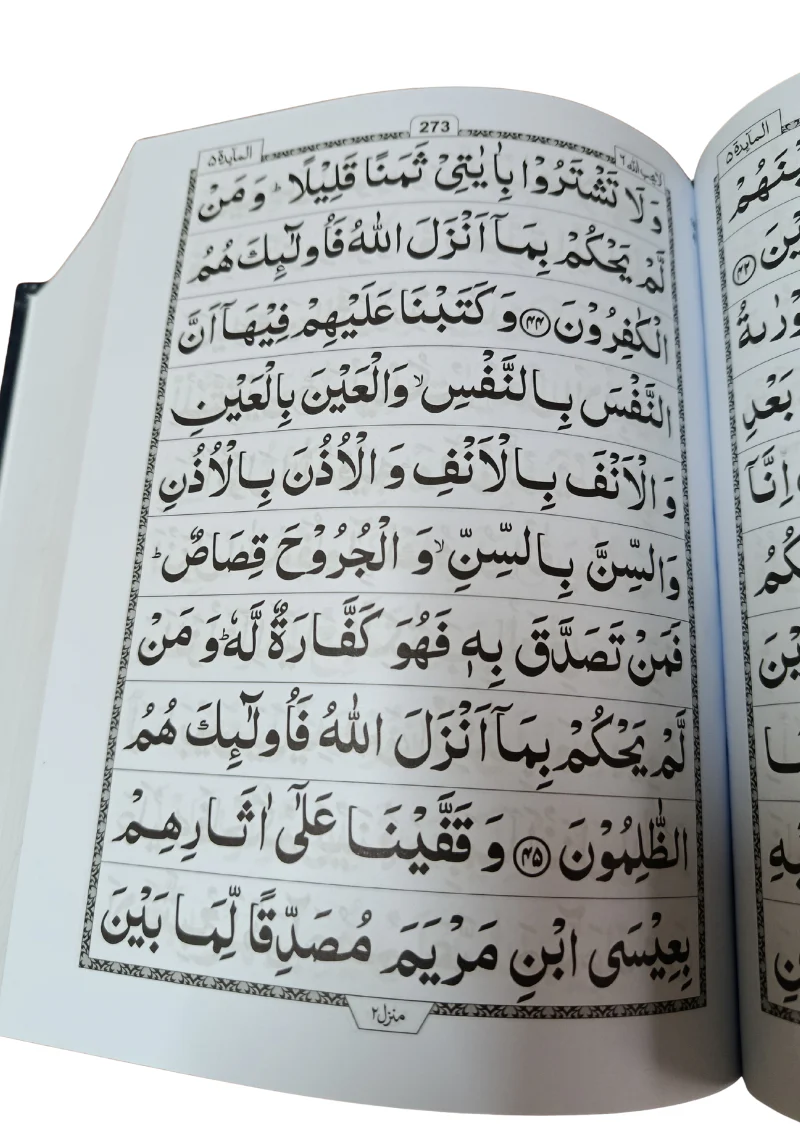 273
لا یحب الله ۶
المآیدة ۵
وَلَا تَشْتَرُوْا بِاٰیٰتِیْ ثَمَنًا قَلِیْلًا ؕ وَ مَنْ
لَّمْ یَحْكُمْ بِمَاۤ اَنْزَلَ اللّٰهُ فَاُولٰٓئِكَ هُمُ
الْكٰفِرُوْنَ ۴۴ وَ كَتَبْنَا عَلَیْهِمْ فِیْهَاۤ اَنَّ
النَّفْسَ بِالنَّفْسِ ۙ وَالْعَیْنَ بِالْعَیْنِ
وَ الْاَنْفَ بِالْاَنْفِ وَ الْاُذُنَ بِالْاُذُنِ
وَالسِّنَّ بِالسِّنِّ ۙ وَ الْجُرُوْحَ قِصَاصٌ ؕ
فَمَنْ تَصَدَّقَ بِهٖ فَهُوَ كَفَّارَةٌ لَّهٗ ؕ وَ مَنْ
لَّمْ یَحْكُمْ بِمَاۤ اَنْزَلَ اللّٰهُ فَاُولٰٓئِكَ هُمُ
الظّٰلِمُوْنَ ۴۵ وَ قَفَّیْنَا عَلٰۤی اٰثَارِهِمْ
بِعِیْسَی ابْنِ مَرْیَمَ مُصَدِّقًا لِّمَا بَیْنَ
منزل ۲
المآیدة ۵
۴۲
بَعْدِ